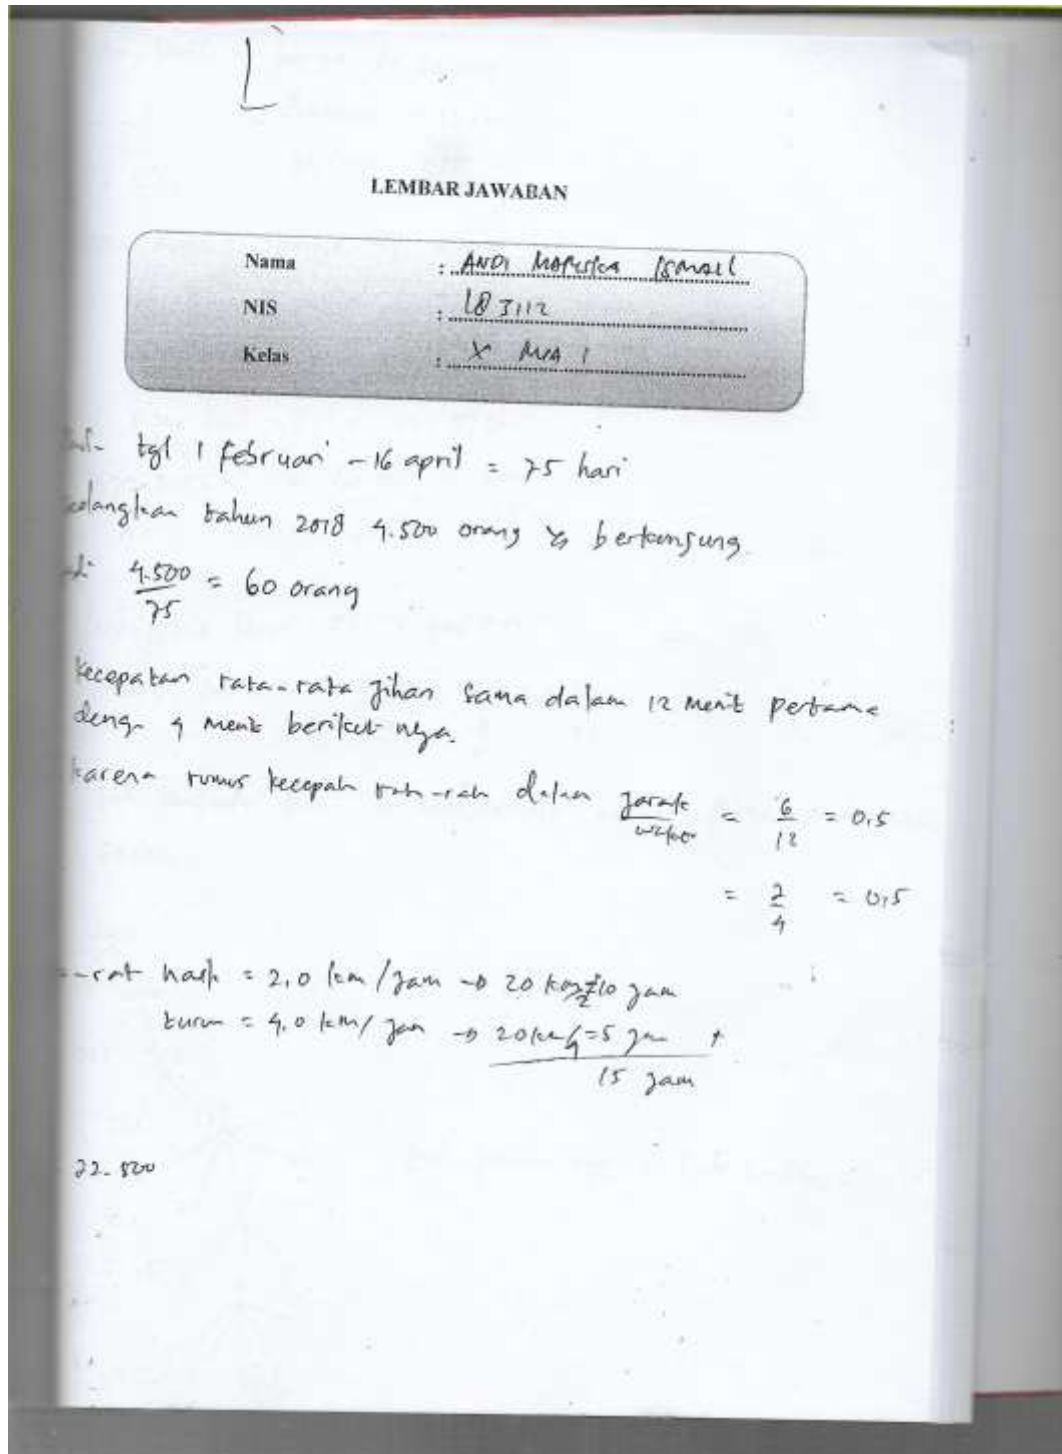 LEMBAR JAWABAN
Nama : ANDI ISMAIL
NIS : 183112
Kelas : X MIA 1
tgl 1 februari - 16 april = 75 hari
tahun 2018 4.500 orang yg berkunjung
4.500 / 75 = 60 orang
kecepatan rata-rata jihan sama dalam 12 menit pertama
deng 4 menit berikut nya.
karena rumus kecepah rata-rata dalam jarak / waktu = 6 / 12 = 0,5
= 2 / 4 = 0,5
naik = 2,0 km/jam → 20 km/2 = 10 jam
turun = 4,0 km/jam → 20 km/4 = 5 jam +
15 jam
22.500